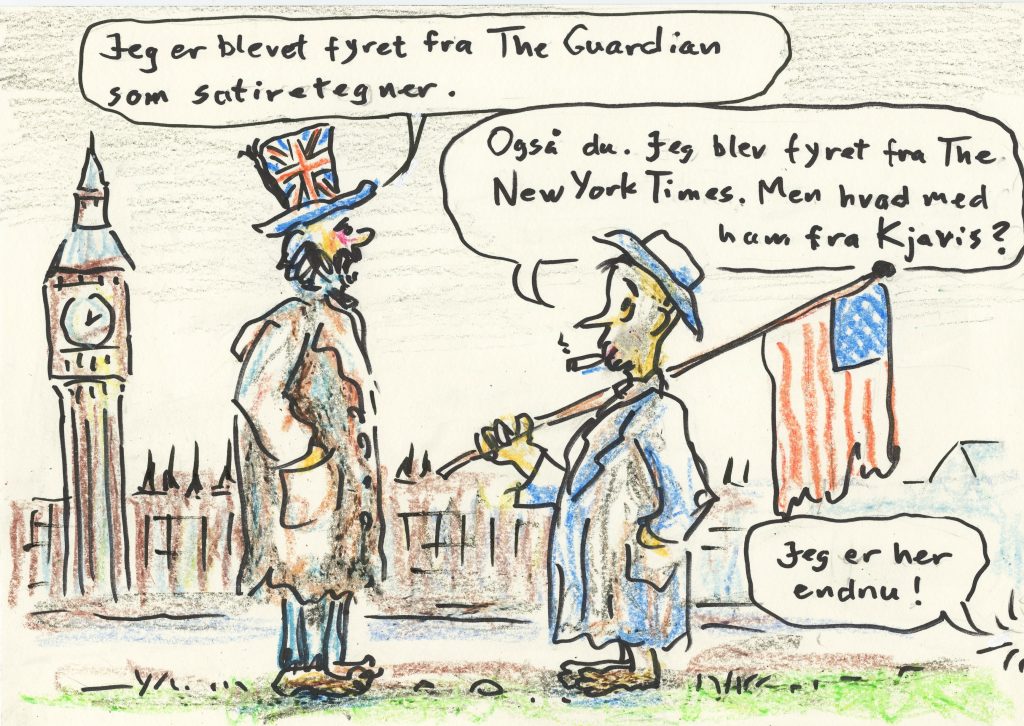 Jeg er blevet fyret fra The Guardian
som satiretegner.
Også du. Jeg blev fyret fra The
New York Times. Men hvad med
ham fra Kjavis?
Jeg er her
endnu!